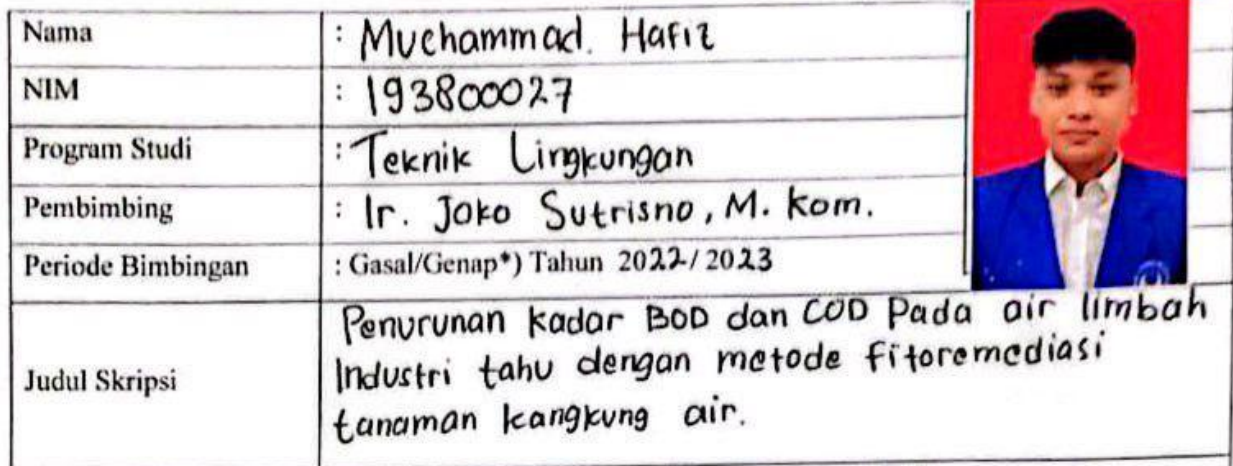 Nama : Muchammad. Hafiz
NIM : 193800027
Program Studi : Teknik Lingkungan
Pembimbing : Ir. Joko Sutrisno, M. Kom.
Periode Bimbingan : Gasal/Genap*) Tahun 2022/2023
Judul Skripsi
Penurunan kadar BOD dan COD Pada air limbah
Industri tahu dengan metode fitoremediasi
tanaman kangkung air.